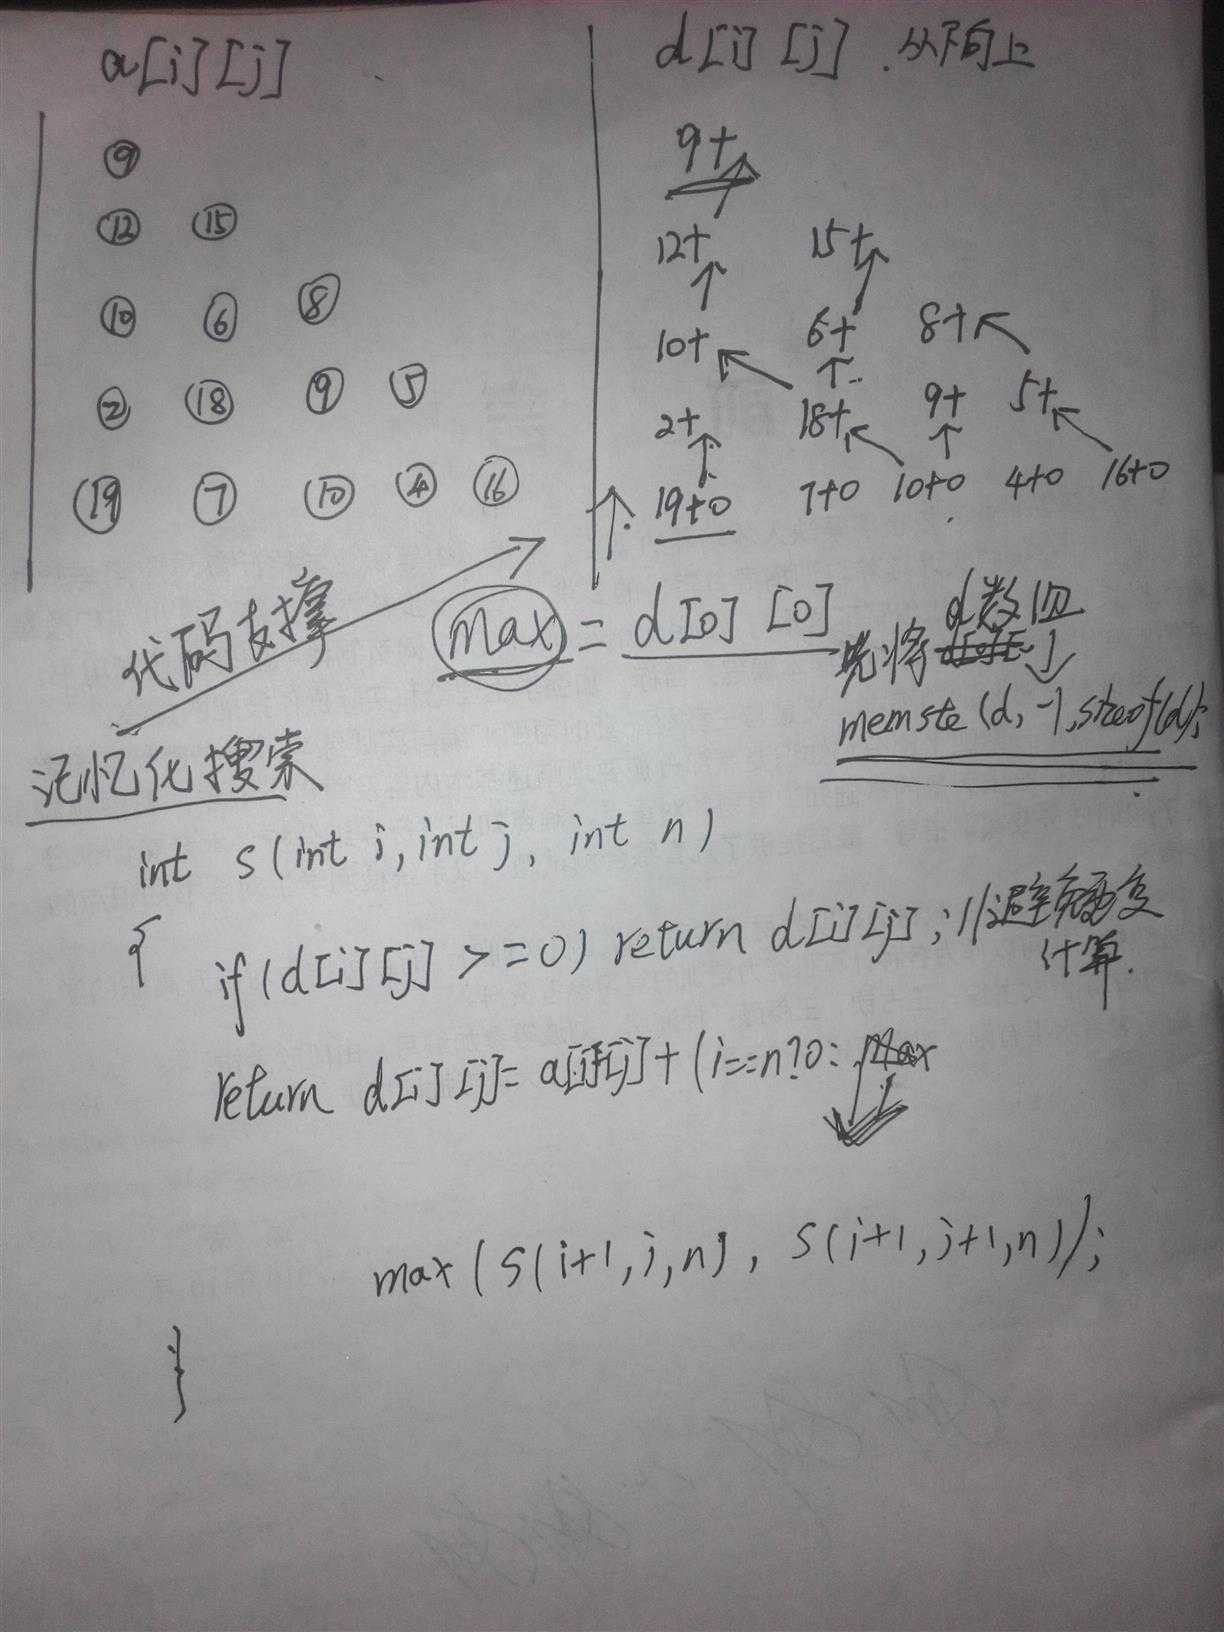 a[i][j]
9
12 15
10 6 8
2 18 9 5
19 7 10 4 16
d[i][j] . 从下向上
9+
12+ 15+
10+ 6+ 8+
2+ 18+ 9+ 5+
19+0 7+0 10+0 4+0 16+0
代码支撑
max = d[0][0]
d数组
先将
memste(d,-1,sizeof(d));
记忆化搜索
int s(int i,int j, int n)
{
if(d[i][j] >=0) return d[i][j]; //避免重复
计算.
return d[i][j]= a[i][j]+(i==n?0:
max(s(i+1,j,n), s(i+1,j+1,n));
}